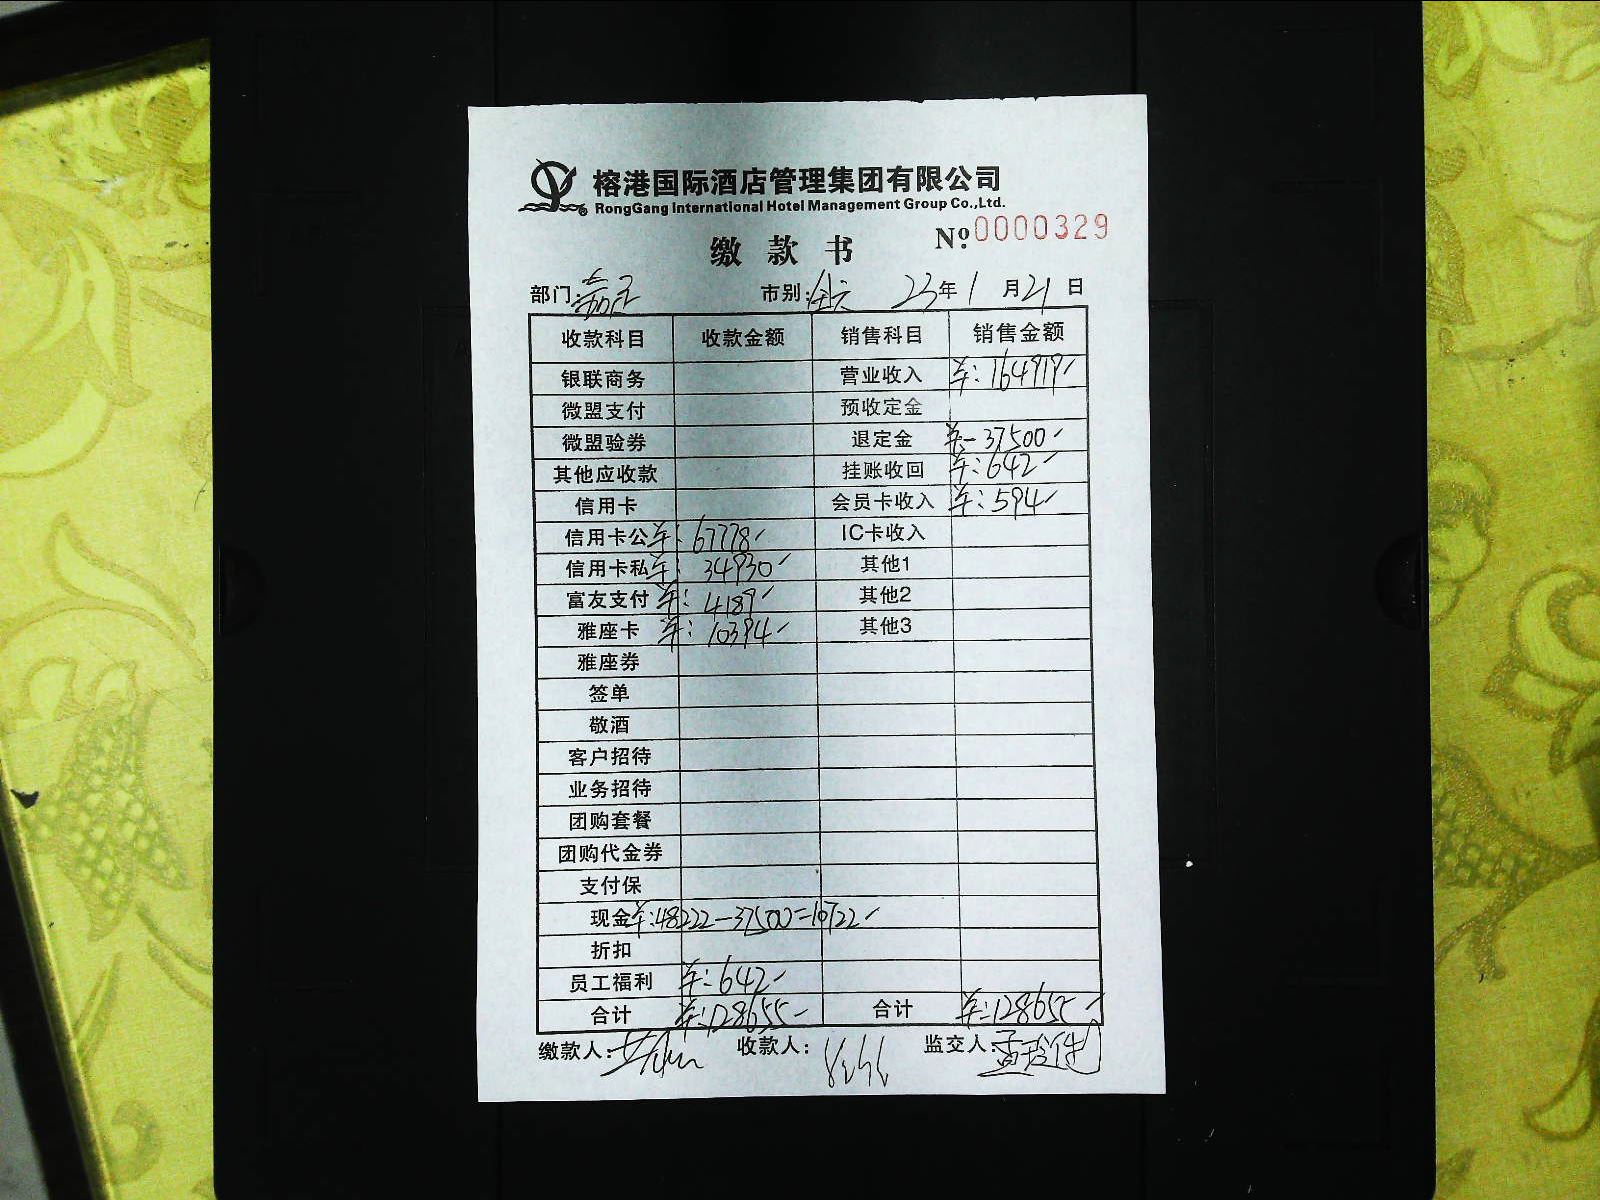 榕港国际酒店管理集团有限公司
RongGang International Hotel Management Group Co.,Ltd.
缴款书 Nº 0000329
部门: 市别: 23年1月21日
收款科目 收款金额 销售科目 销售金额
银联商务 营业收入 ¥:164919
微盟支付 预收定金
微盟验券 退定金 ¥-37500
其他应收款 挂账收回 ¥:642
信用卡 会员卡收入 ¥:594
信用卡公 ¥:67778 IC卡收入
信用卡私 ¥:34930 其他1
富友支付 ¥:4189 其他2
雅座卡 ¥:10394 其他3
雅座券
签单
敬酒
客户招待
业务招待
团购套餐
团购代金券
支付保
现金 ¥:48222-37500=10722
折扣
员工福利 ¥:642
合计 ¥:128655 合计 ¥:128655
缴款人: 收款人: 监交人: